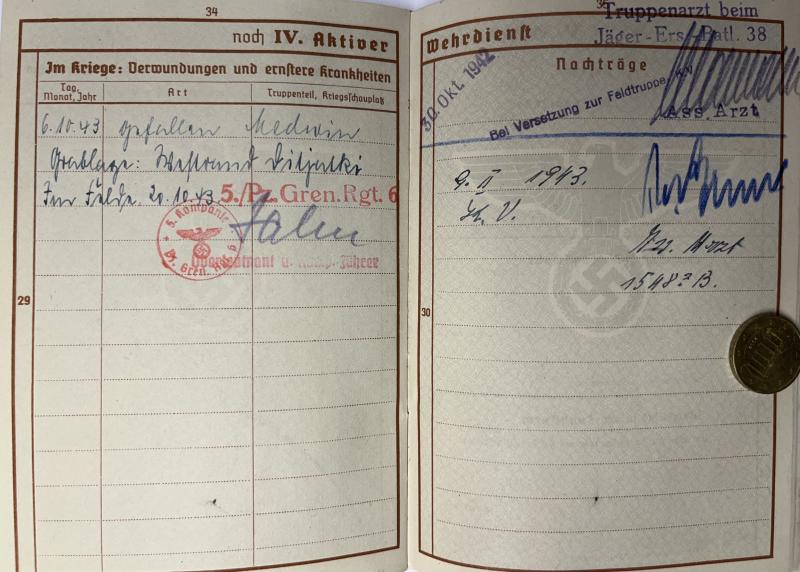 34
noch IV. Aktiver
Im Kriege: Verwundungen und ernstere Krankheiten
Tag, Monat, Jahr
Art
Truppenteil, Kriegsschauplatz
6.10.43 gefallen Medwin
Grablage: Westrand Ditjatki
Im Felde 20.10.43 5./Pz. Gren. Rgt. 6
5. Kompanie
Pz. Gren. Rgt. 6
Oberleutnant u. Komp. Führer
29
35
Truppenarzt beim
Jäger-Ers.-Batl. 38
Wehrdienst
Nachträge
30. Okt. 1942
Bei Versetzung zur Feldtruppe, kv
Ass. Arzt
9. II 1943.
K. V.
1548 B.
30